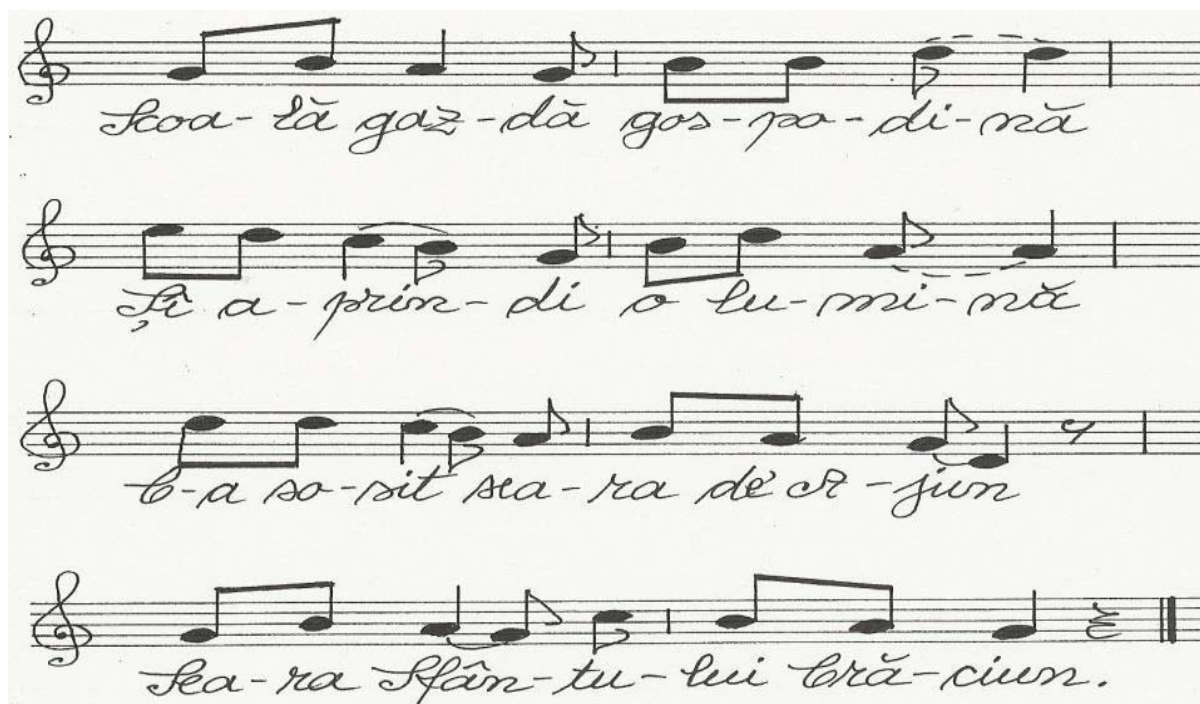 Scoa-lă gaz-dă gos-po-di-nă
Şî a-prin-di o lu-mi-nă
C-a so-sit sea-ra de aj-jun
Sea-ra Sfân-tu-lui Cră-ciun.